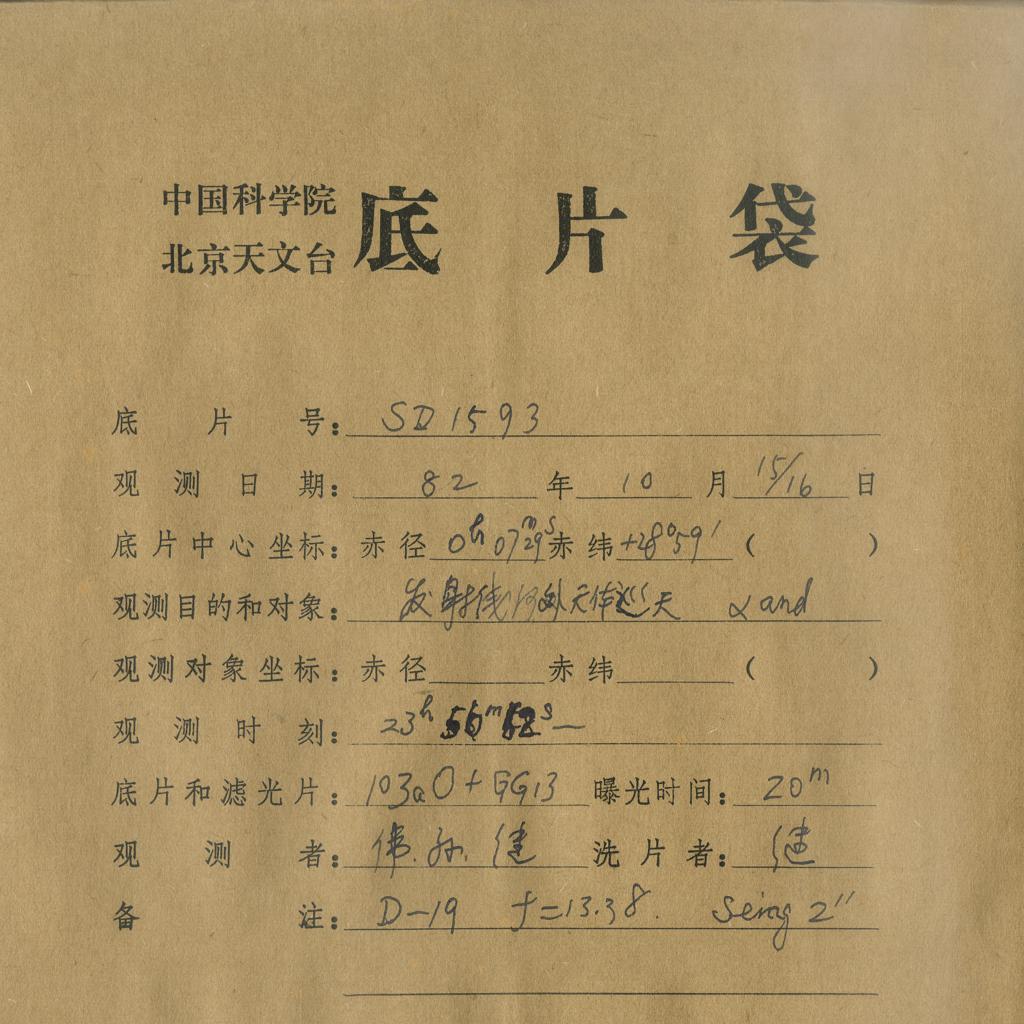 中国科学院
北京天文台
底片袋
底片号: SD 1593
观测日期: 82 年 10 月 15/16 日
底片中心坐标: 赤径 0h 07m 29s 赤纬 +28°59′ ( )
观测目的和对象: 发射线河外天体巡天 α and
观测对象坐标: 赤径 赤纬 ( )
观测时刻: 23h 56m 52s —
底片和滤光片: 103aO + GG13 曝光时间: 20m
观测者: 伟. 孙. 健 洗片者: 健
备注: D-19 f=13.38. Seing 2″